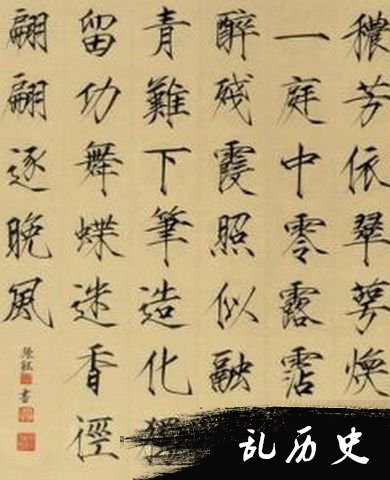 穠芳依翠萼煥
一庭中零露霑
醉殘霞照似融
青難下筆造化獨
留功舞蝶迷香徑
翩翩逐晚風
書
乱历史